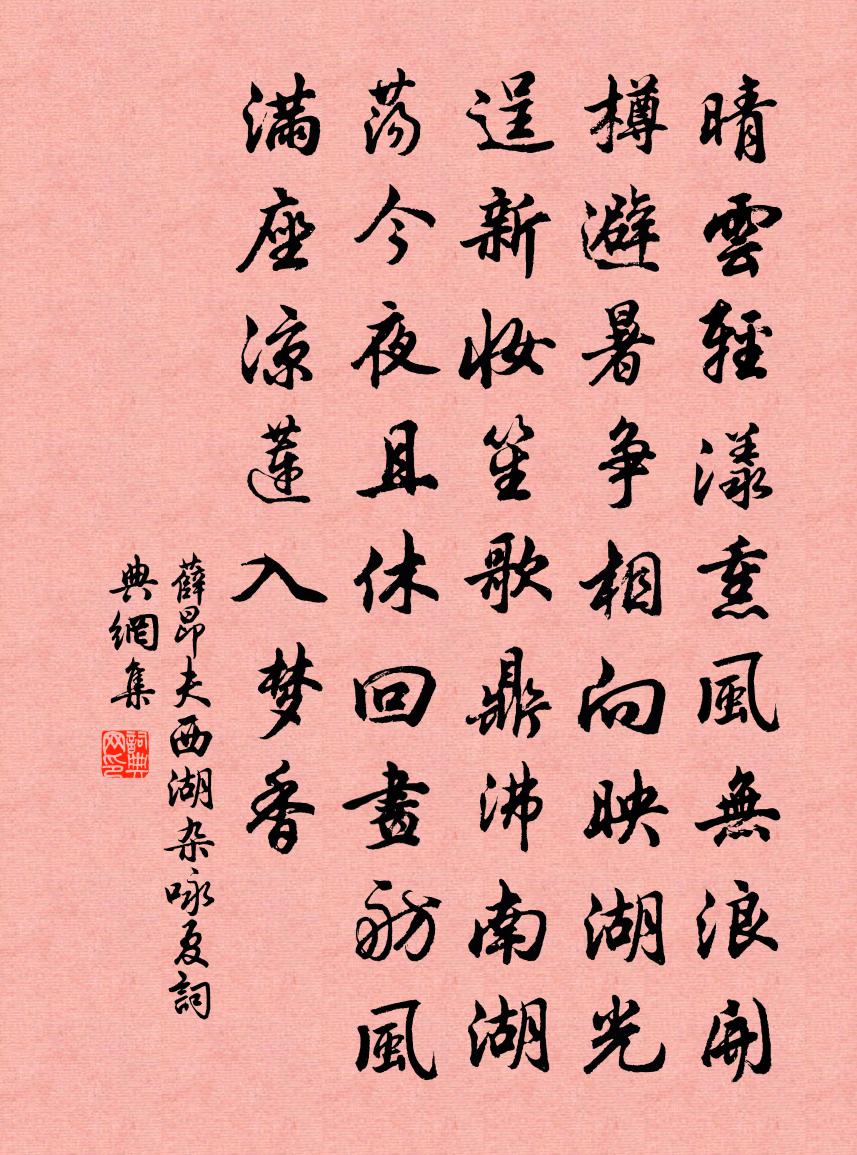 晴雲輕漾熏風無浪開
樽避暑争相向映湖光
逞新妝笙歌鼎沸南湖
蕩今夜且休回畫舫風
满座凉蓮入梦香
薛昂夫西湖杂咏夏詞
典網集
詞典网印